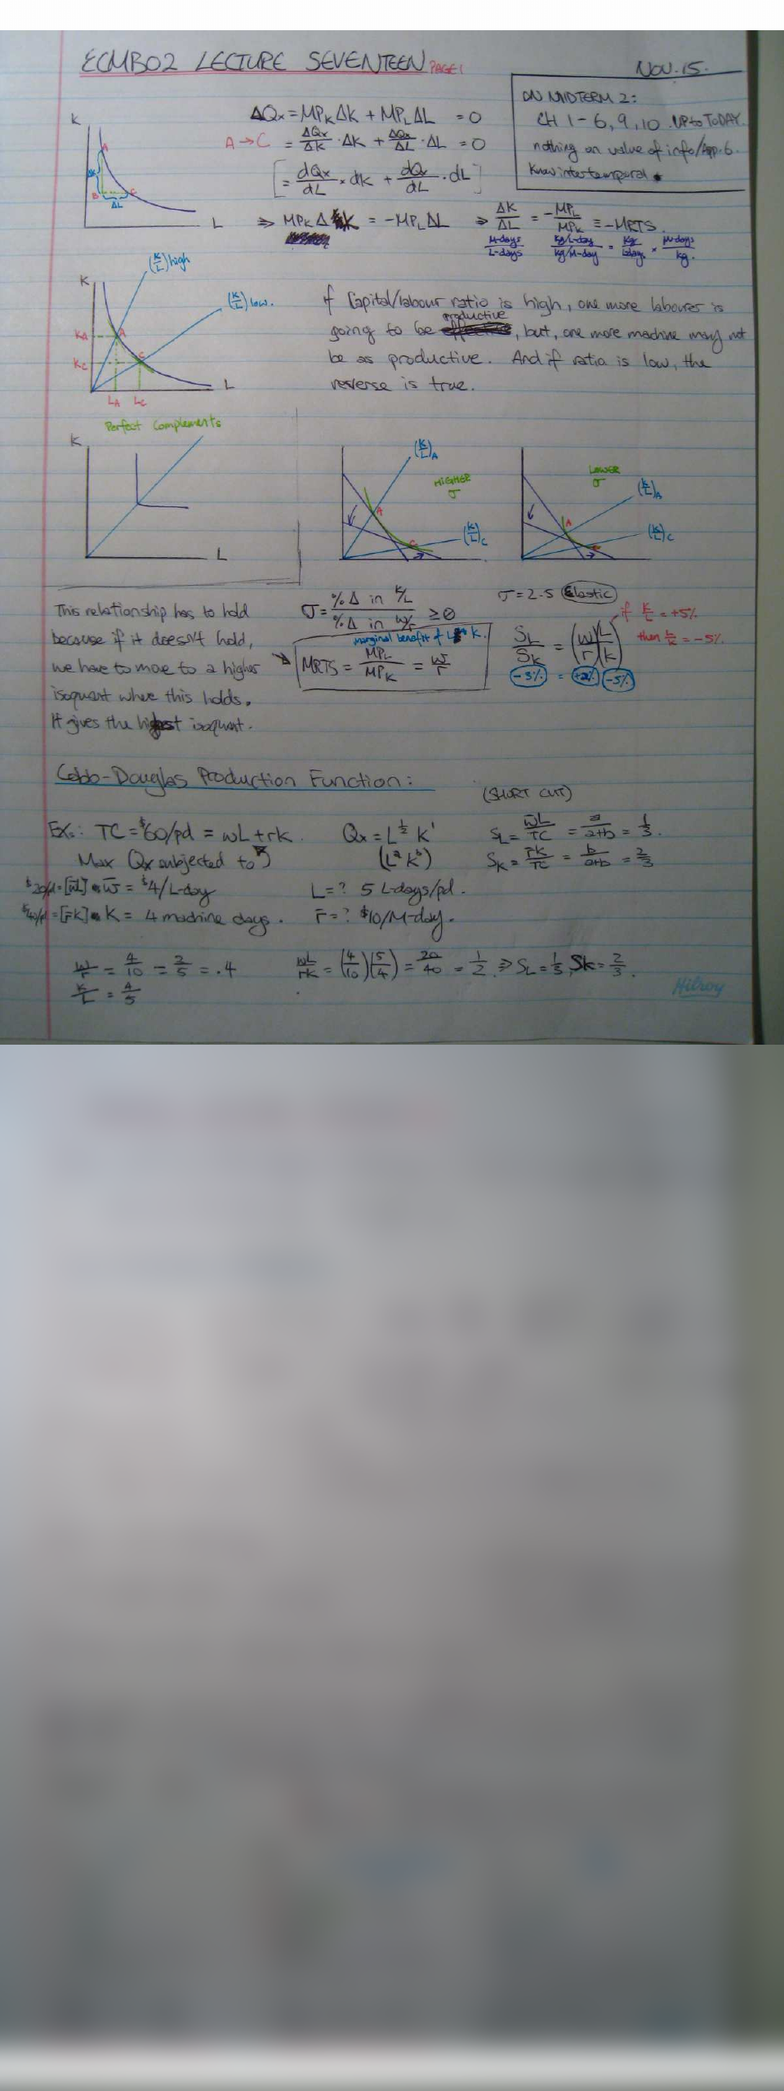 ECMB02 LECTURE SEVENTEEN PAGE 1
NOV. 15.
ON MIDTERM 2:
CH 1 - 6, 9, 10. UP to TODAY.
nothing on value of info/App. 6.
Know intertemporal
K
A
ΔK
B
C
ΔL
L
ΔQx = MPK ΔK + MPL ΔL = 0
A → C = ΔQx/ΔK · ΔK + ΔQx/ΔL · ΔL = 0
[= dQx/dL × dK + dQx/dL · dL]
⇒ MPK ΔK = -MPL ΔL ⇒ ΔK/ΔL = -MPL/MPK ≡ -MRTS
M-days/L-days kg/L-day/kg/M-day = kg/Ldays × M-days/kg.
K
(K/L) high
(K/L) low.
KA
A
KC
C
LA LC
L
if Capital/labour ratio is high, one more labourer is
going to be productive, but, one more machine may not
be as productive. And if ratio is low, the
reverse is true.
Perfect Complements
K
L
(K/L)A
HIGHER
σ
A
C
(K/L)C
LOWER
σ
(K/L)A
A
(K/L)C
This relationship has to hold
because if it doesn't hold,
we have to move to a higher
isoquant where this holds.
It gives the highest isoquant.
σ = %Δ in K/L / %Δ in w/r ≥ 0
marginal benefit of L K.
MRTS = MPL/MPK = w/r
σ = 2.5 Elastic
SL/SK = (w/r)(L/K)
-3% = +2% -5%
if K/L = +5%
then L/K = -5%
Cobb-Douglas Production Function:
(SHORT CUT)
EX.: TC = $60/pd = wL + rK
Max Qx subjected to
Qx = L^½ K^1
(L^a K^b)
SL = wL/TC = a/a+b = 1/3.
SK = rK/TC = b/a+b = 2/3
$20/pd = [wL] w = $4/L-day
L = ? 5 L-days/pd.
$40/pd = [rK] K = 4 machine days.
r = ? $10/M-day.
w/r = 4/10 = 2/5 = .4
wL/rK = (4/10)(5/4) = 20/40 = 1/2 ⇒ SL = 1/3, SK = 2/3.
K/L = 4/5
Hilroy